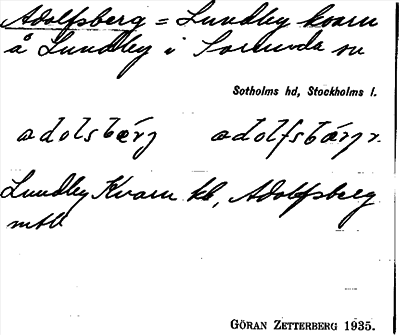 Adolfsberg = Lundby kvarn
å Lundby i Sorunda sn
Sotholms hd, Stockholms l.
adolsbärj adolfsbärj r.
Lundby Kvarn kb, Adolfsberg
mtl
GÖRAN ZETTERBERG 1935.